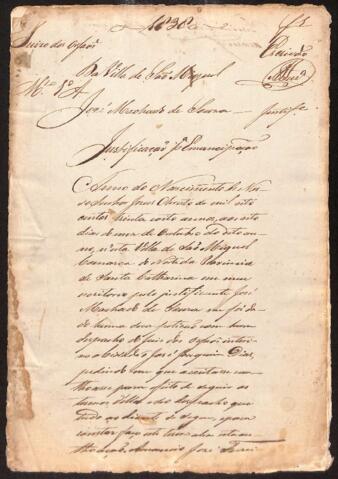 1838
f 1
Juizo dos Orfaons
Escrivão
Da Villa de São Miguel
José Machado de Souza — Justife.
Justificação pa. Emancipação
Anno do Nascimento de Nos
so Senhor Jesus Christo de mil oito
centos trinta e oito annos, aos oito
dias do mez de Outubro do dito an
no, n'esta Villa de São Miguel
Comarca do Norte da Provincia
de Santa Catharina em meu
escritorio pelo justificante José
Machado de Souza me foi da
da huma sua petição com hum
despacho do Juis dos Orfaos interi
no o Cidadão José Joaquim Dias,
pedindo-me que aceitasse
para effeito de seguir os
termos d'ella e do despacho que
tudo ao diante se segue, e para
constar faço este termo
Amancio José Ferrei